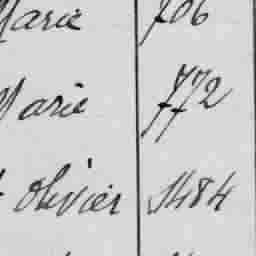 Marie 706
Marie 772
Olivier 1484